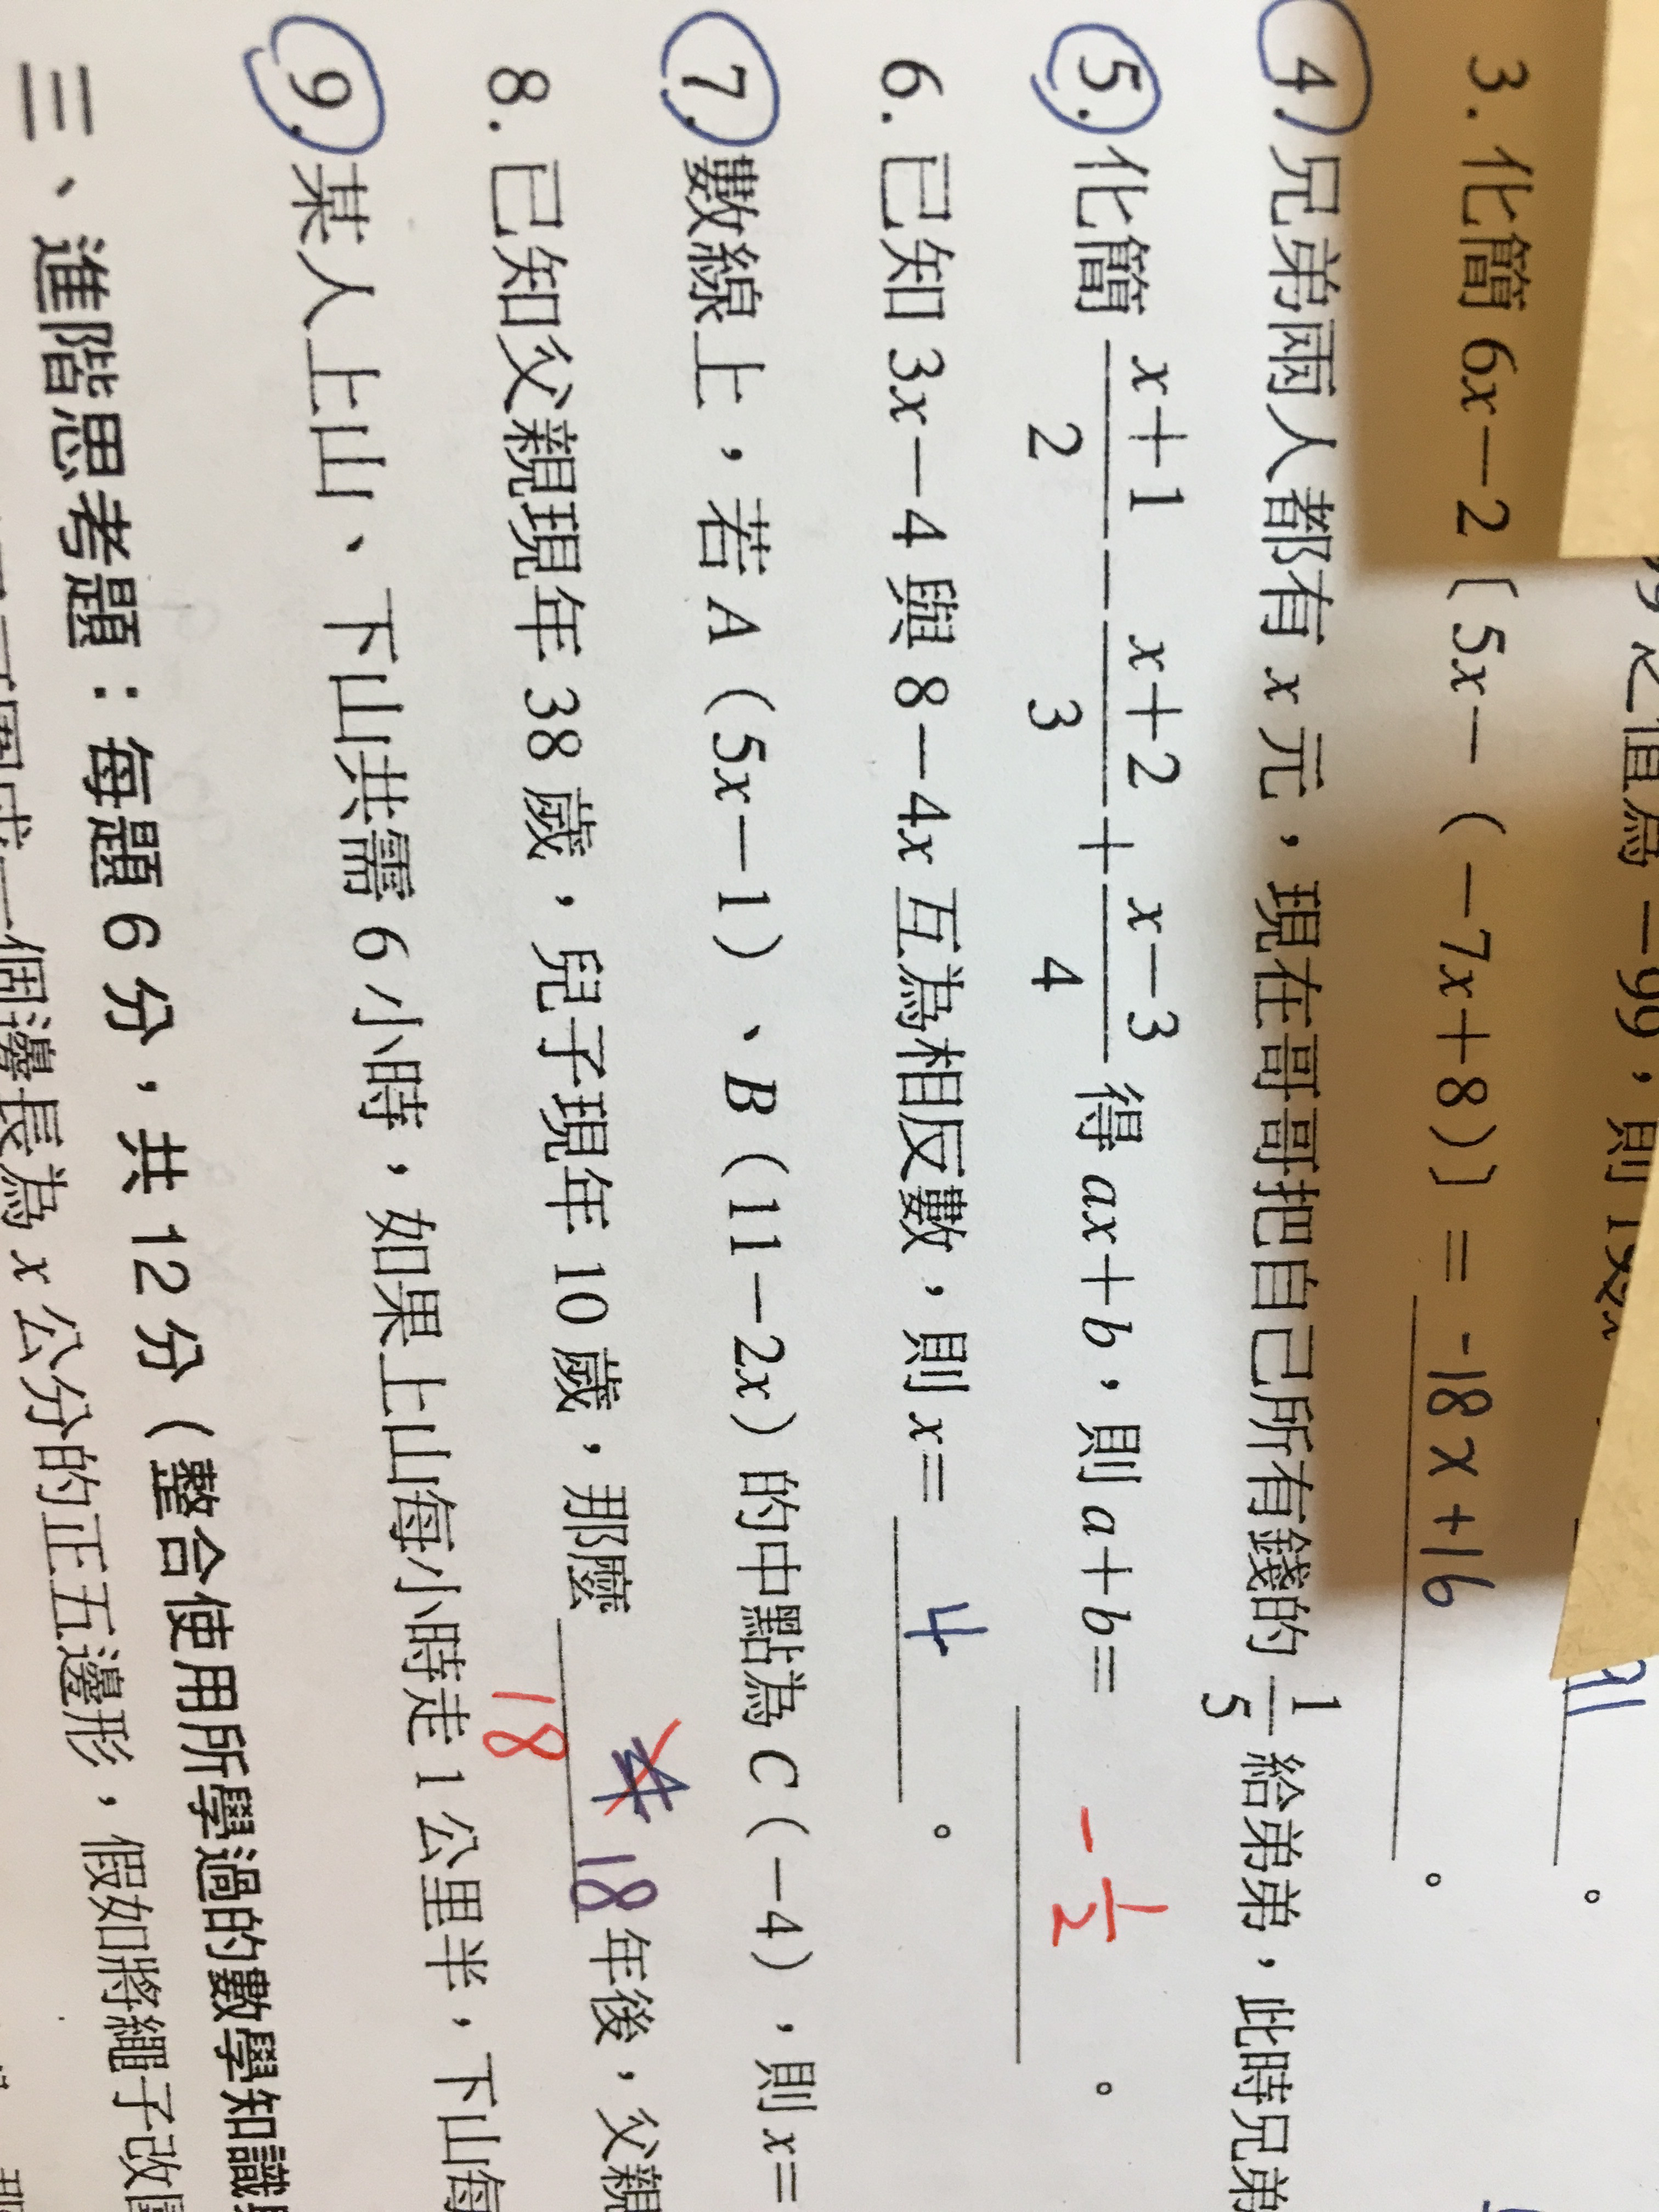 之值為－99，則
21
3. 化簡 6x－2〔5x－（－7x＋8）〕＝ -18x+16 。
4. 兄弟兩人都有 x 元，現在哥哥把自己所有錢的 1/5 給弟弟，此時兄弟
5. 化簡 (x＋1)/2 － (x＋2)/3 ＋ (x－3)/4 得 ax＋b，則 a＋b＝ -1/2 。
6. 已知 3x－4 與 8－4x 互為相反數，則 x＝ 4 。
7. 數線上，若 A（5x－1）、B（11－2x）的中點為 C（－4），則 x＝
8. 已知父親現年 38 歲，兒子現年 10 歲，那麼 18 年後，父親
18
9. 某人上山、下山共需 6 小時，如果上山每小時走 1 公里半，下山每
三、進階思考題：每題 6 分，共 12 分（整合使用所學過的數學知識
圍成一個邊長為 x 公分的正五邊形，假如將繩子改圍